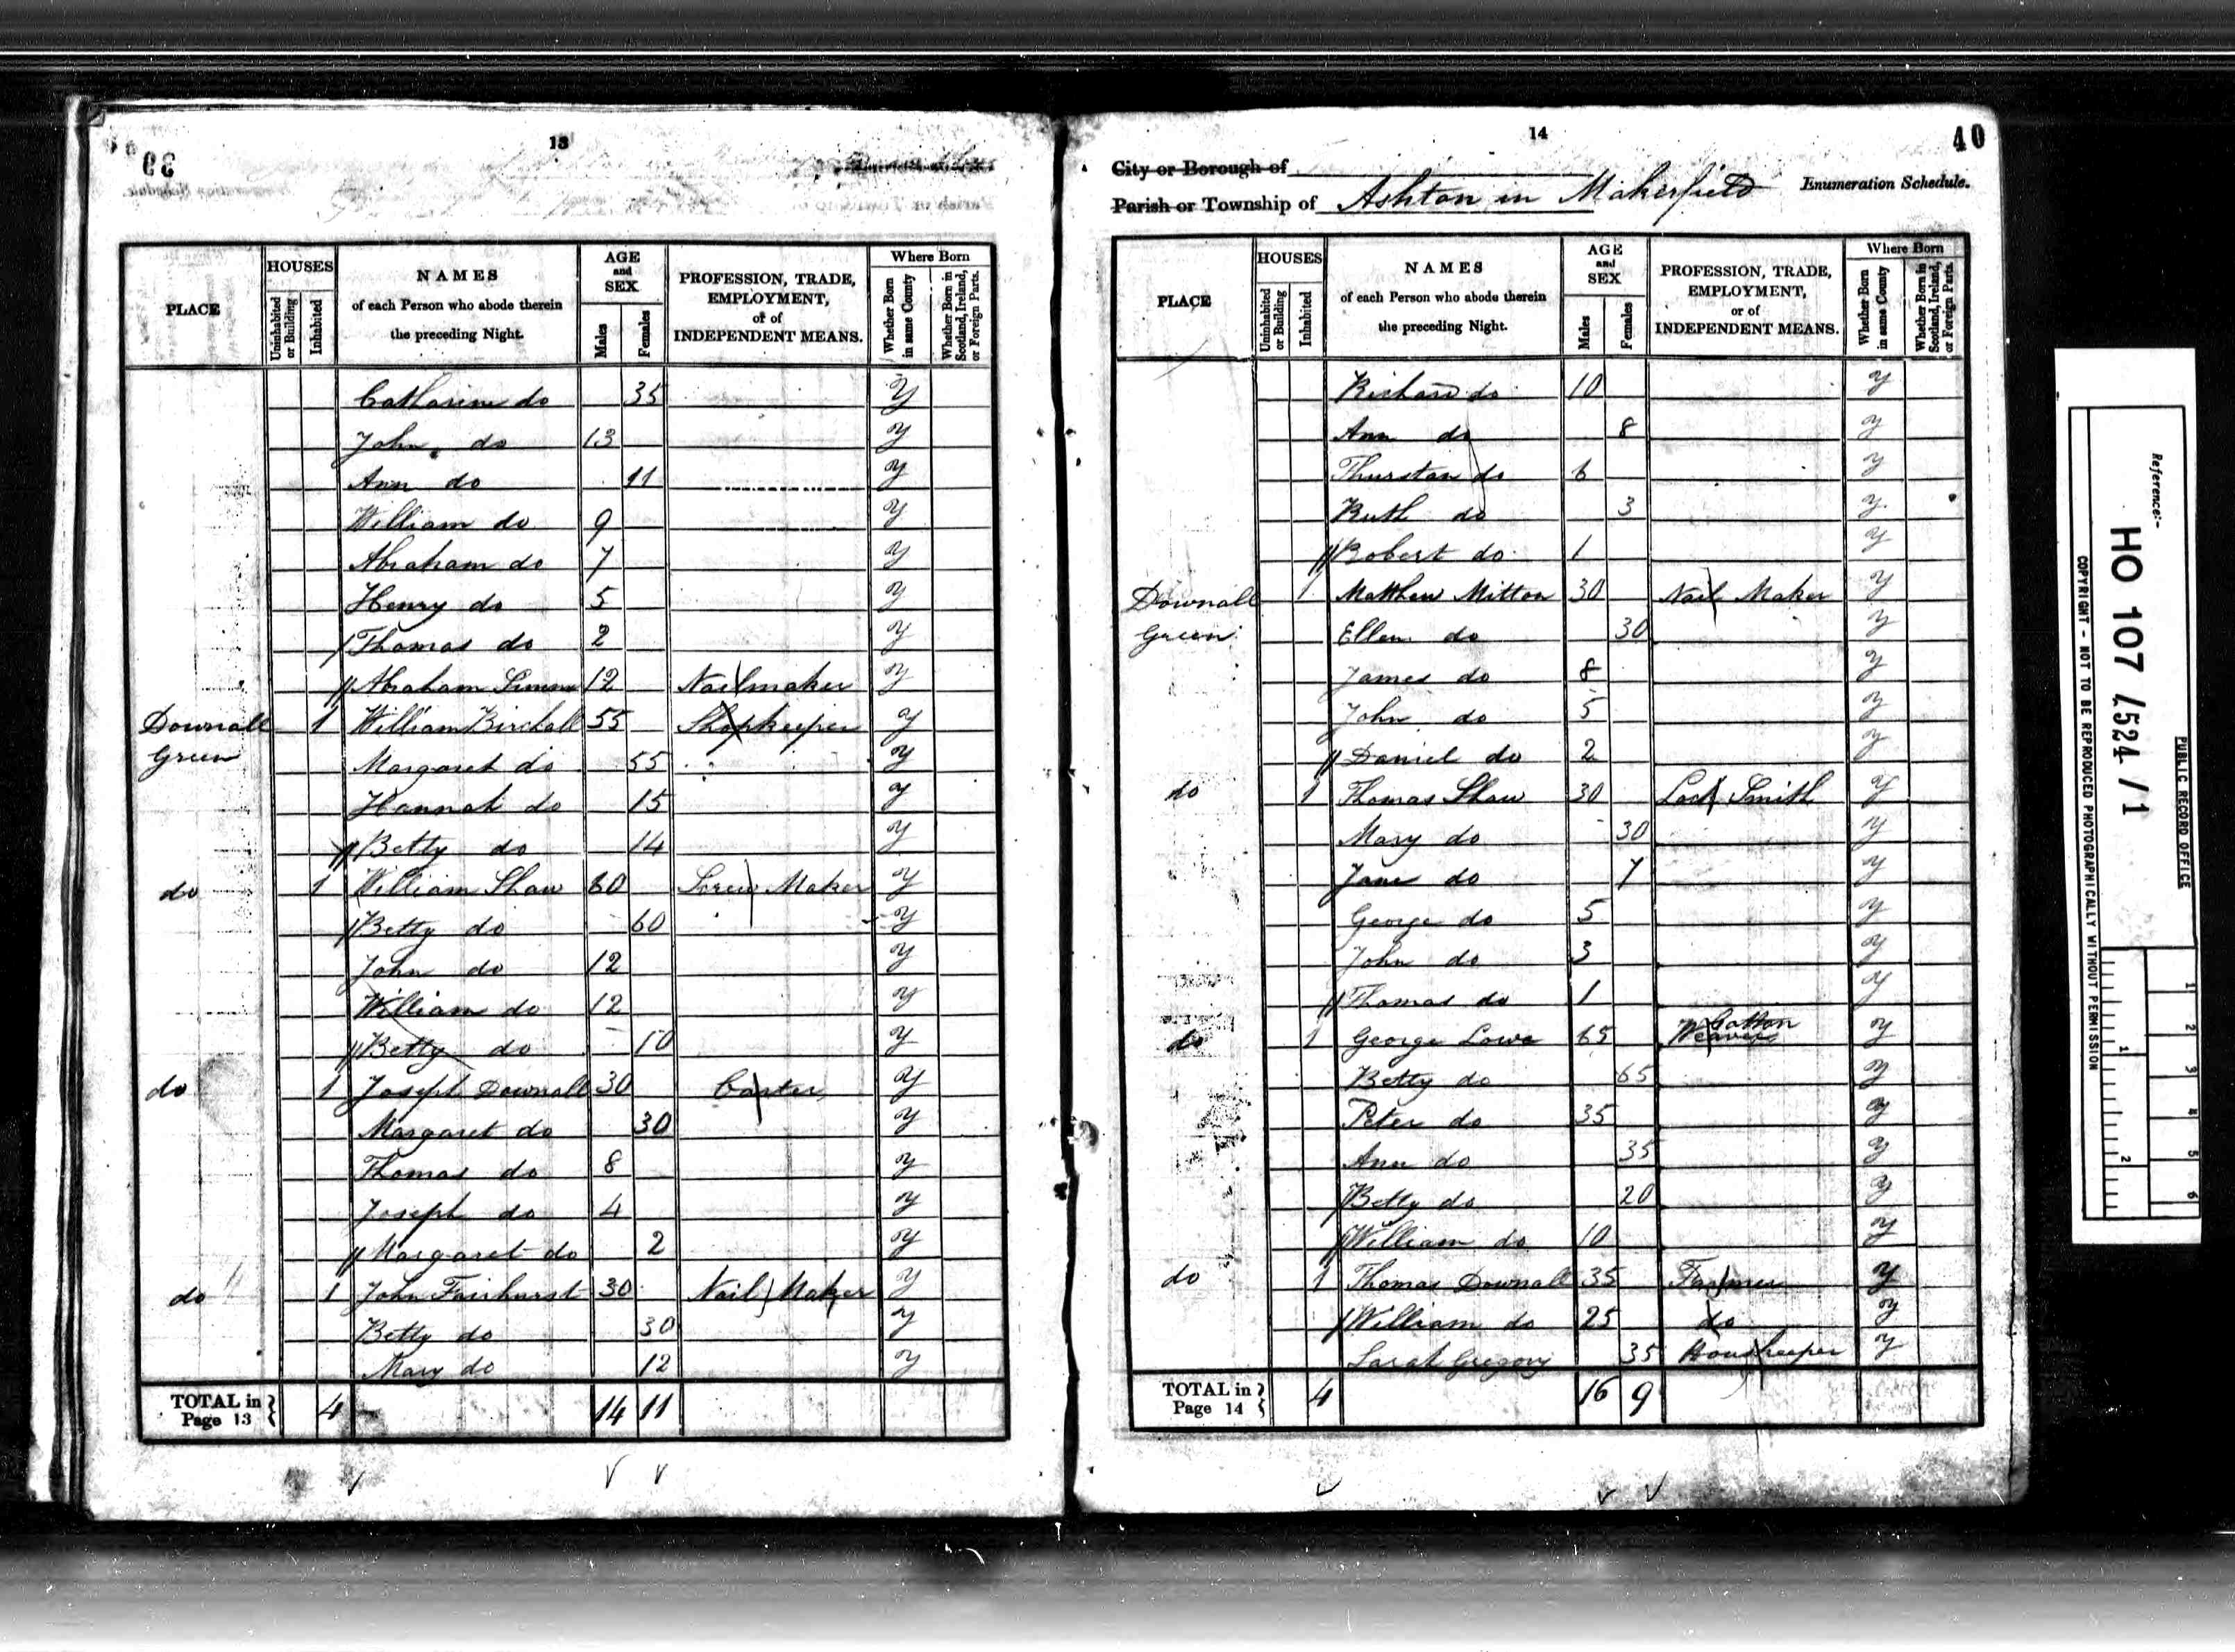 13
39
PLACE
HOUSES
Uninhabited or Building
Inhabited
NAMES
of each Person who abode therein
the preceding Night.
AGE and SEX
Males
Females
PROFESSION, TRADE,
EMPLOYMENT,
or of
INDEPENDENT MEANS.
Where Born
Whether Born in same County
Whether Born in Scotland, Ireland, or Foreign Parts.
Catharine do 35 y
John do 13 y
Ann do 11 y
William do 9 y
Abraham do 7 y
Henry do 5 y
Thomas do 2 y
Abraham 12 Nailmaker y
Downall Green 1 William Birchall 55 Shopkeeper y
Margaret do 55 y
Hannah do 15 y
Betty do 14 y
do 1 William Shaw 60 Screw Maker y
Betty do 60 y
John do 12 y
William do 12 y
Betty do 10 y
do 1 Joseph Downall 30 Carter y
Margaret do 30 y
Thomas do 8 y
Joseph do 4 y
Margaret do 2 y
do 1 John Fairhurst 30 Nail Maker y
Betty do 30 y
Mary do 12 y
TOTAL in Page 13 4 14 11
14
40
City or Borough of
Parish or Township of Ashton in Makerfield
Enumeration Schedule.
PLACE
HOUSES
Uninhabited or Building
Inhabited
NAMES
of each Person who abode therein
the preceding Night.
AGE and SEX
Males
Females
PROFESSION, TRADE,
EMPLOYMENT,
or of
INDEPENDENT MEANS.
Where Born
Whether Born in same County
Whether Born in Scotland, Ireland, or Foreign Parts.
Richard do 10 y
Ann do 8 y
Thurstan do 6 y
Ruth do 3 y
Robert do 1 y
Downall Green 1 Matthew Mitton 30 Nail Maker y
Ellen do 30 y
James do 8 y
John do 5 y
Daniel do 2 y
do 1 Thomas Shaw 30 Lock Smith y
Mary do 30 y
Jane do 7 y
George do 5 y
John do 3 y
Thomas do 1 y
do 1 George Lowe 65 Cotton Weaver y
Betty do 65 y
Peter do 35 y
Ann do 35 y
Betty do 20 y
William do 10 y
do 1 Thomas Downall 35 Farmer y
William do 25 do y
Sarah Gregory 35 Housekeeper y
TOTAL in Page 14 4 16 9
Reference:-
HO 107 /524 /1
PUBLIC RECORD OFFICE
COPYRIGHT - NOT TO BE REPRODUCED PHOTOGRAPHICALLY WITHOUT PERMISSION
1 2 3 4 5 6
1 2